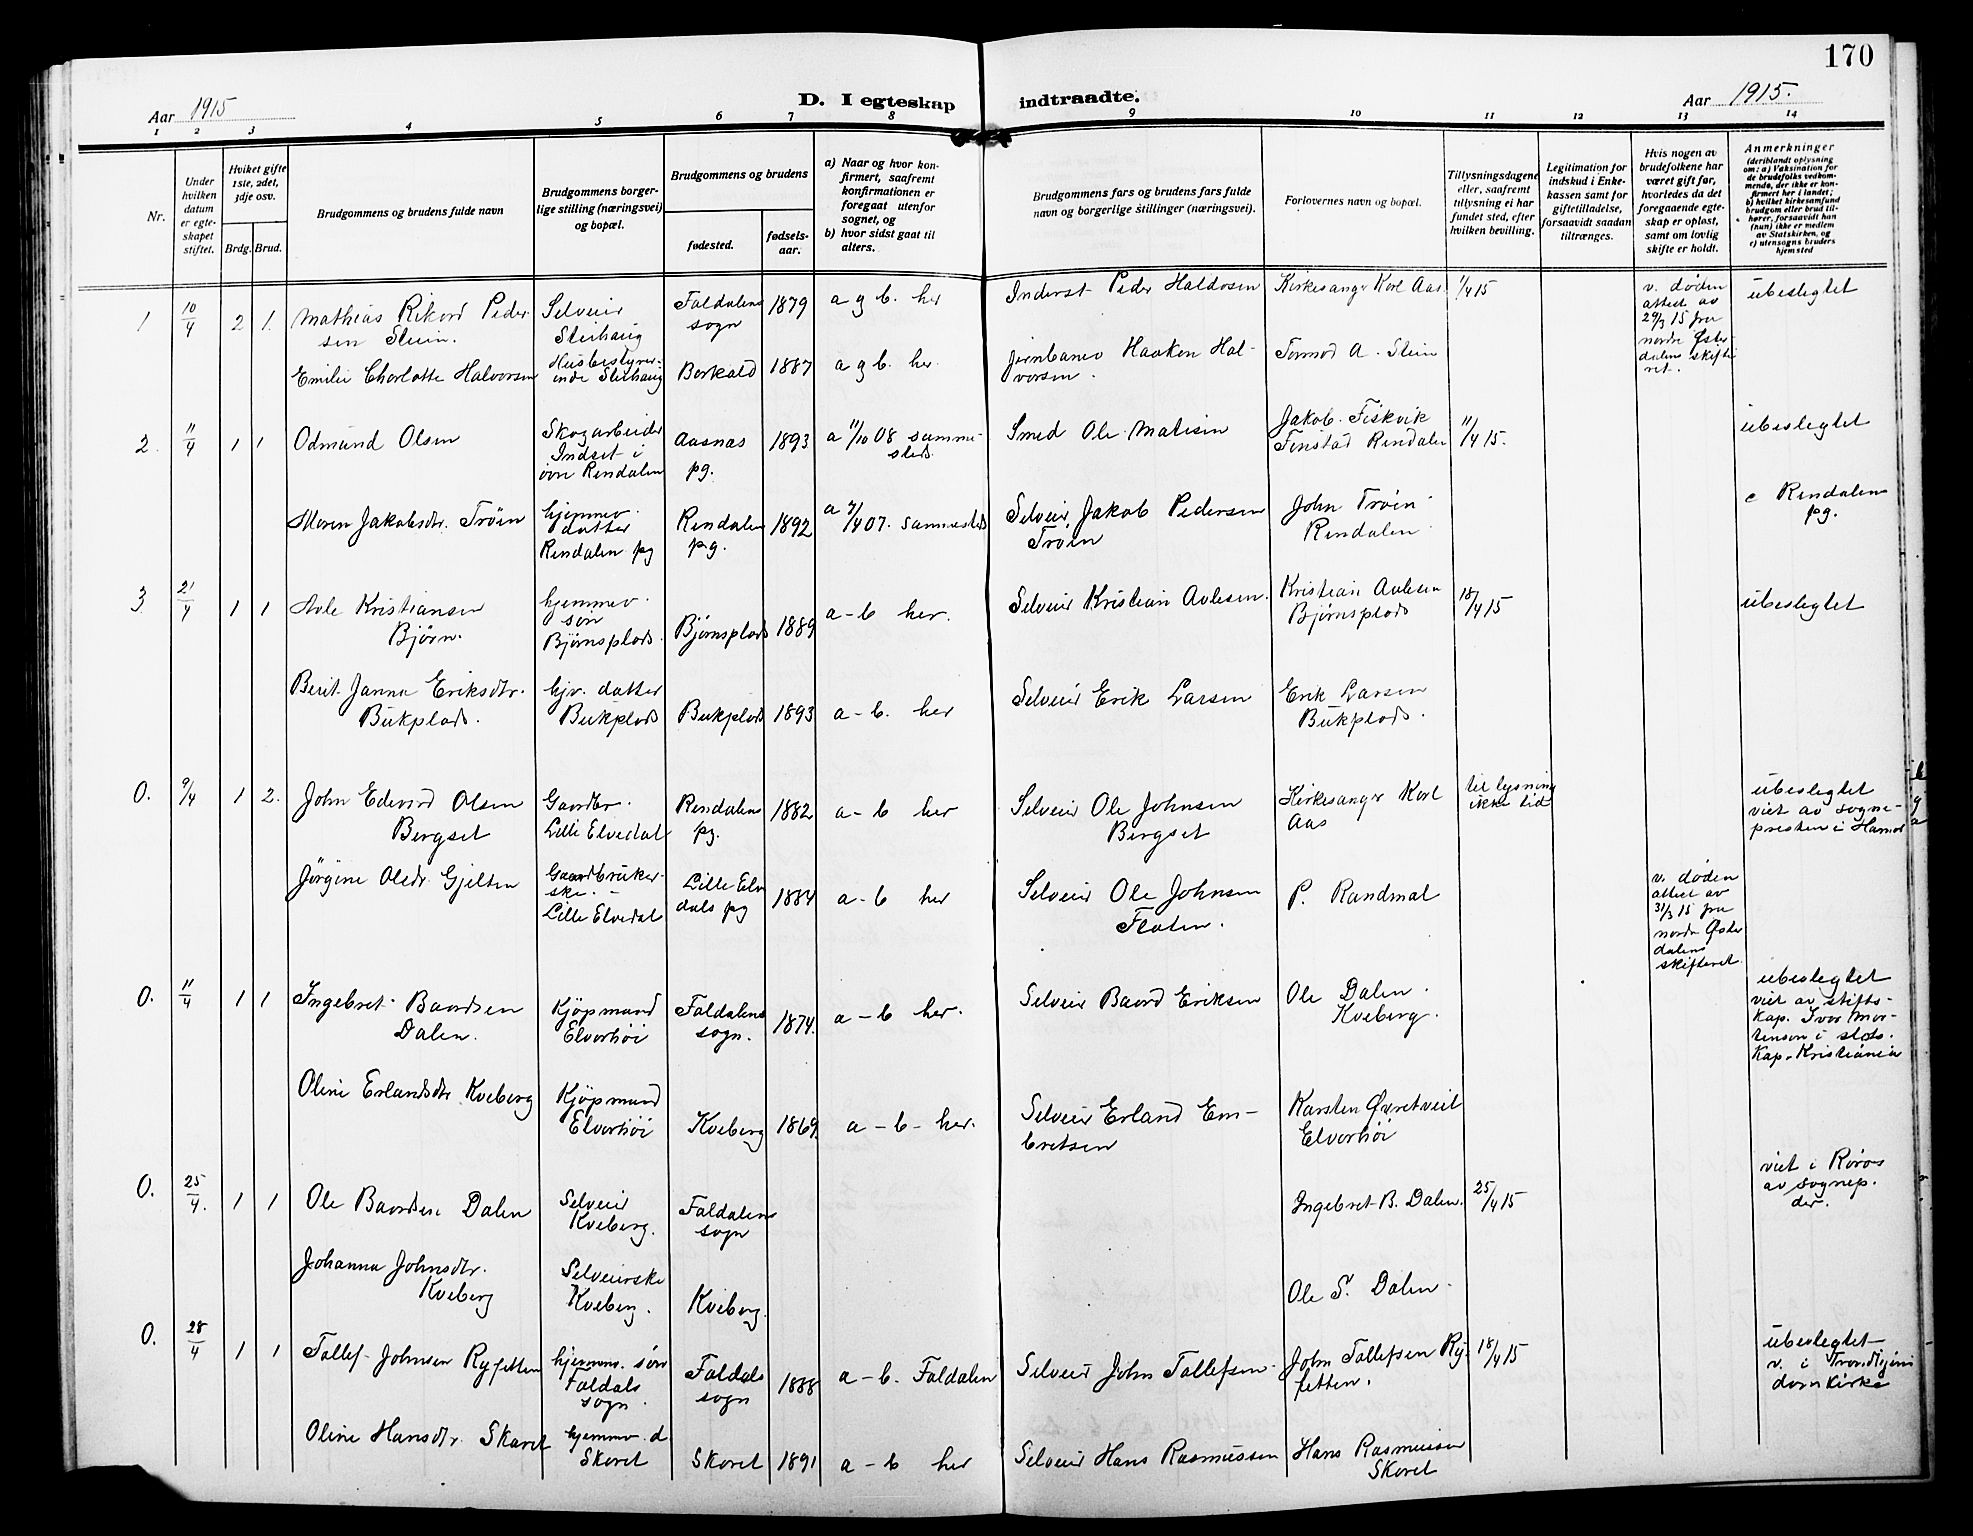 170
Aar 1915
D. I egteskap indtraadte.
Aar 1915.
1 2 3 4 5 6 7 8 9 10 11 12 13 14
Nr.
Under hvilken datum er egteskapet stiftet.
Hvilket gifte 1ste, 2det, 3dje osv.
Brdg. Brud.
Brudgommens og brudens fulde navn
Brudgommens borgerlige stilling (næringsvei) og bopæl.
Brudgommens og brudens
fødested.
fødselsaar.
a) Naar og hvor konfirmert, saafremt konfirmationen er foregaat utenfor sognet, og
b) hvor sidst gaat til alters.
Brudgommens fars og brudens fars fulde navn og borgerlige stillinger (næringsvei).
Forlovernes navn og bopæl.
Tillysningsdagene eller, saafremt tillysning ei har fundet sted, efter hvilken bevilling.
Legitimation for indskud i Enkekassen samt for giftetilladelse, forsaavidt saadan tiltrænges.
Hvis nogen av brudefolkene har været gift før, hvorledes da det foregaaende egteskap er opløst, samt om lovlig skifte er holdt.
Anmerkninger
(deriblandt oplysning om: a) Vaksination for de brudefolks vedkommende, der ikke er konfirmert her i landet; b) hvilket kirkesamfund brudgom eller brud tilhører, forsaavidt han (hun) ikke er medlem av Statskirken, og c) utensogns bruders hjemsted
1 10/4 2 1. Mathias Rikard Pedersen Steien. Selveier Steihaug Foldalens sogn 1879 a g b. her Inderst Peder Haldosen Kirkesanger Karl Aas 1/4 15 v. døden attest av 29/3 15 fra nordre Østerdalens skifteret. ubeslegtet
Emilie Charlotte Halvorsen Husbestyrerinde Steihaug Borkald 1887 a g b. her. Jernbanev Haaken Halvorsen. Tormod A. Stein
2. 11/4 1 1 Odmund Olsen Skogarbeider Indset i øvre Rendalen Aasnæs pg. 1893 a 11/10 08 sammesteds Smed Ole Matisen Jakob Fiskvik Finstad Rendalen 11/4 15. ubeslegtet
Maren Jakobsdtr. Trøen hjemmev. datter Rendalen pg Rendalen pg. 1892 a 7/4 07. sammesteds Selveier Jakob Pedersen Trøen John Trøen Rendalen c Rendalen pg.
3. 21/4 1 1 Avle Kristiansen Bjørn. hjemmev. søn Bjørnsplads. Bjørnsplads 1889 a-b her. Selveier Kristian Avlesen. Kristian Avlesen Bjørnsplads 18/4 15 ubeslegtet
Berit Janna Eriksdtr. Bukplads. hjv. datter Bukplads Bukplads 1893 a-b. her Selveier Erik Larsen Erik Larsen Bukplads.
0. 9/4 1 2. John Edvard Olsen Bergset Gaardbr. Lille Elvedal Rendalens pg. 1882 a-b her Selveier Ole Johnsen Bergset Kirkesanger Karl Aas til lysning ikke tid ubeslegtet viet av sognepresten i Hamar
Jørgine Olsdr. Gjelten Gaardbrukerske. - Lille Elvedal Lille Elvdals pg 1884 a-b her Selveier Ole Johnsen Floten. P. Randmæl v. døden attest av 31/3 15 fra nordre Østerdalens skifteret
0. 11/4 1 1 Ingebret Baardsen Dalen. Kjøpmand Elverhøi Foldalens sogn. 1874. a-b her. Selveier Baard Eriksen Ole Dalen. Kveberg. ubeslegtet viet av stiftskap. Ivar Mortenson i slots. Kap. Kristiania
Oline Erlandsdtr Kveberg Kjøpmand Elverhøi Kveberg 1869. a-b-her. Selveier Erland Embretsen Karsten Øvretveit Elverhøi
0. 25/4. 1 1 Ole Baardsen Dalen Selveier Kveberg. Foldalens sogn Ingebret B. Dalen. 25/4 15 viet i Røros av sognep. der.
Johanna Johnsdtr. Kveberg Selveierske Kveberg. Kveberg. Ole S. Dalen.
0. 28/4 1 1 Tollef Johnsen Ryfetten hjemm. søn Foldals sogn Foldals sogn 1888 a-b. Foldalen Selveier John Tollefsen John Tollefsen Ryfetten. 18/4 15 ubeslegtet v. i Trondhjems domkirke
Oline Hansdtr. Skaret hjemmev. d Skaret Skaret 1891 a-b her Selveier Hans Rasmussen Hans Rasmussen Skaret